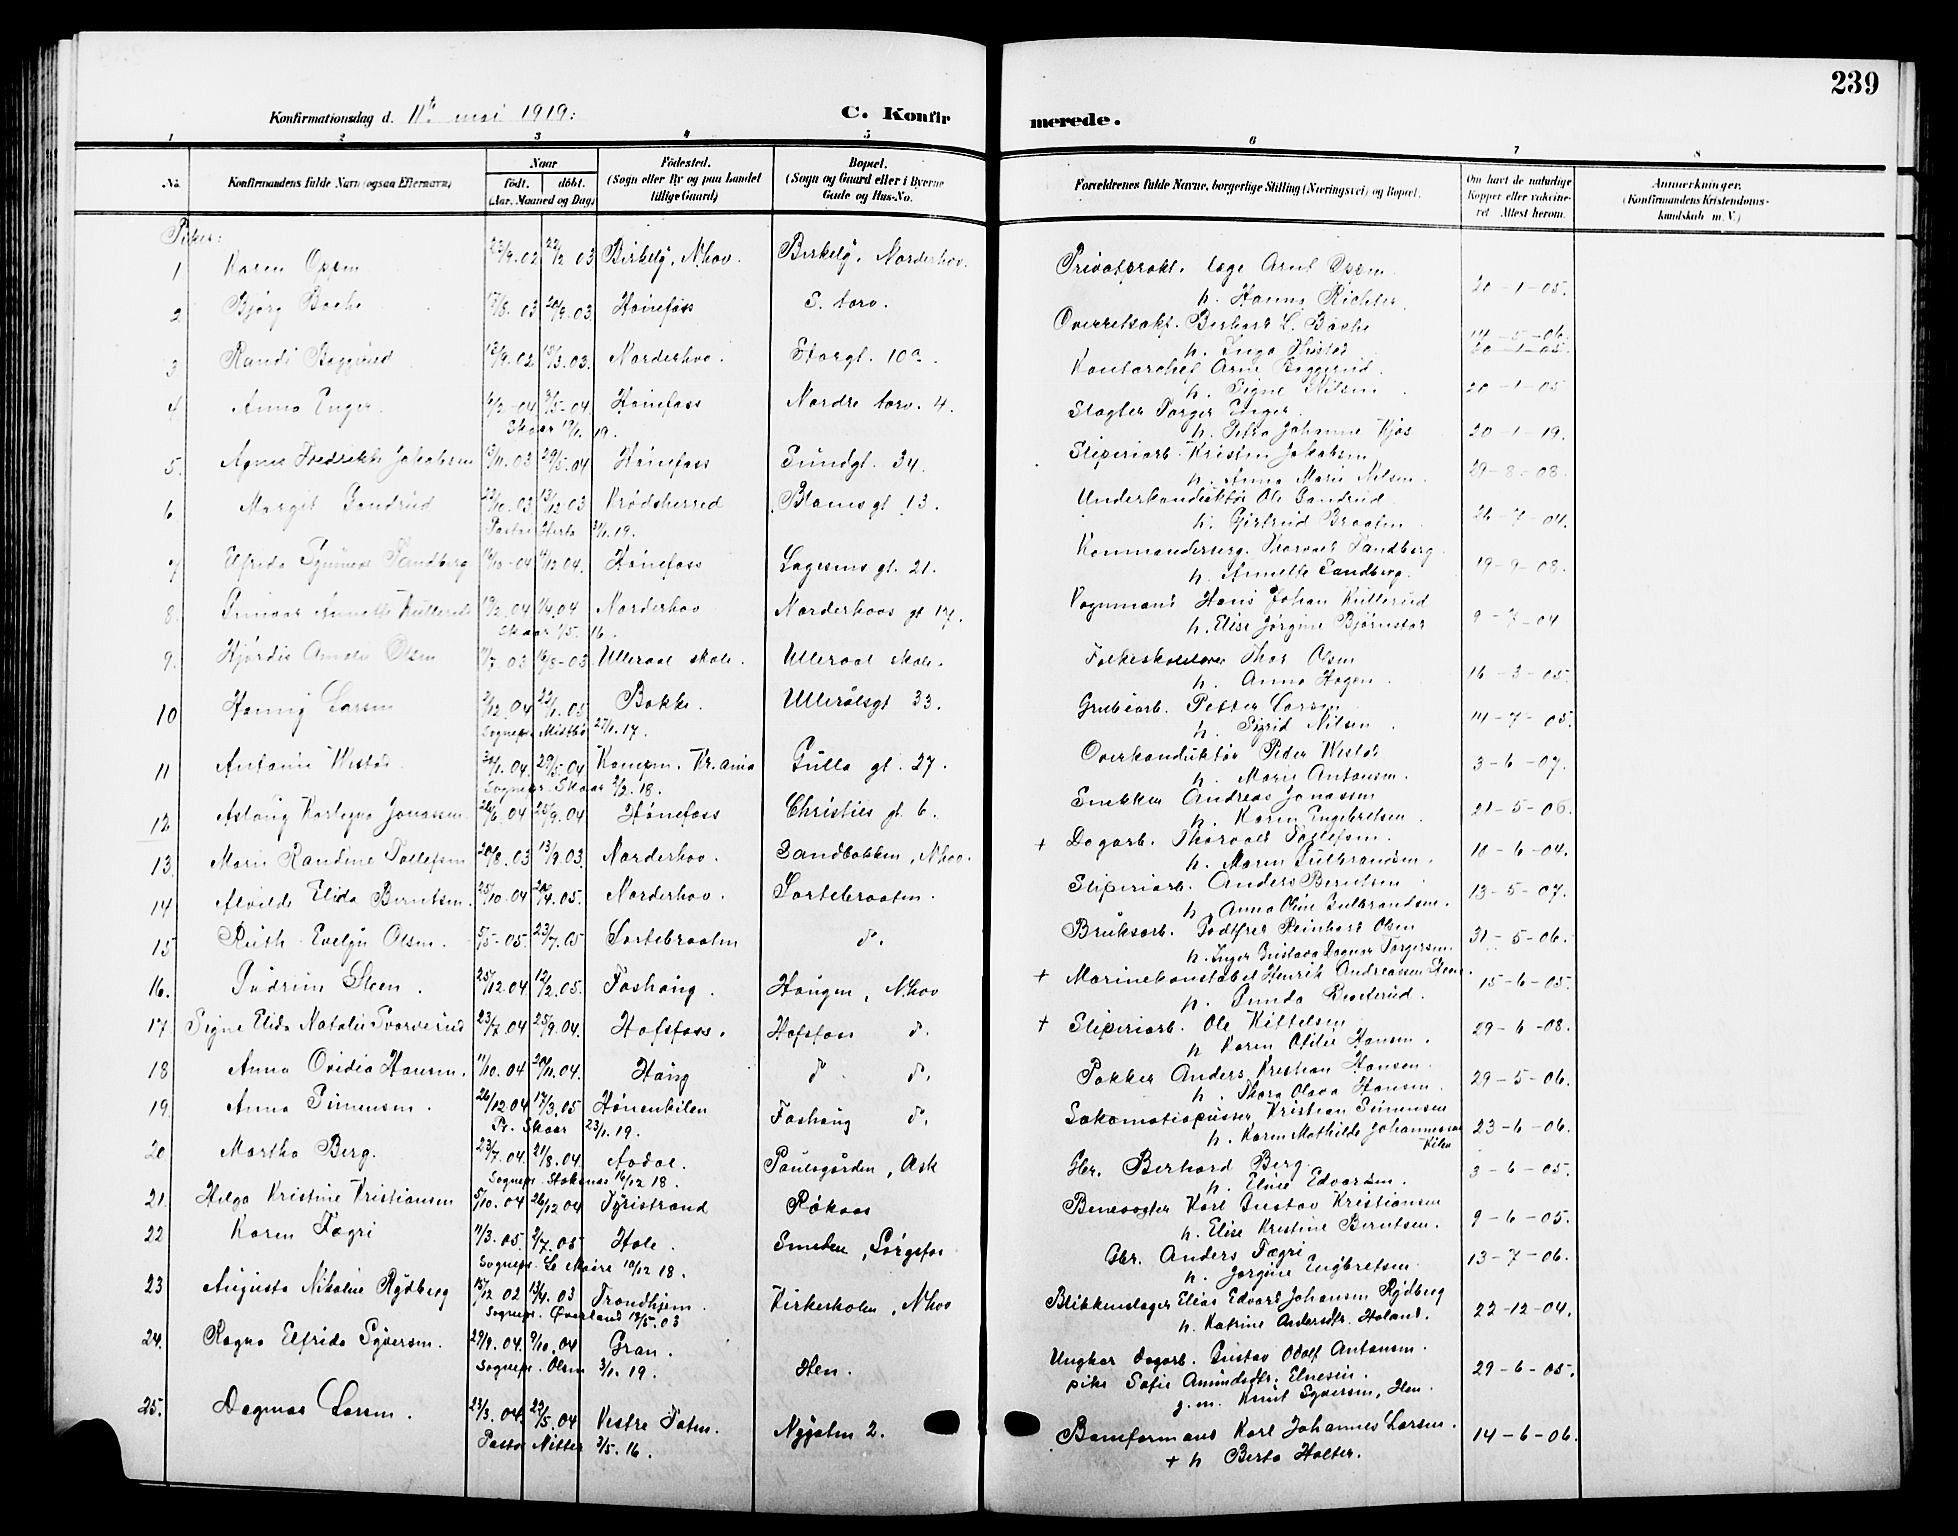 239
Konfirmationsdag d. 11te mai 1919.
C. Konfirmerede.
1 2 3 4 5 6 7 8
No.
Konfirmandens fulde Navn (ogsaa Efternavn)
Naar
födt. döbt.
(Aar, Maaned og Dag)
Födested.
(Sogn eller By og paa Landet
tillige Gaard)
Bopæl.
(Sogn og Gaard eller i Byerne
Gade og Hus-No.
Forældrenes fulde Navne, borgerlige Stilling (Næringsvei) og Bopæl.
Om havt de naturlige
Kopper eller vakcine-
ret Attest herom.
Anmærkninger.
(Konfirmandens Kristendoms-
kundskab m. V.)
Piker:
1 Karen Oppen 23/9.02 22/2 03 Birkely, Nhov. Birkely, Norderhov. Privatprakt. læge Arnt Oppen
h. Hanna Richter. 20-1-05.
2 Bjørg Bache 17/8. 03 20/9.03. Hønefoss S. torv. Overretssakf. Berhard L. Bache
h. Inga 14-5-06.
3 Randi Boggerud 13/9.02 15/3.03. Norderhov. Storgt. 10a. Kontorchef Arne Boggerud.
h. Signe Nilsen 20-1-05
4 Anna Enger 6/2-04 3/5-04 Hønefoss Nordre torv. 4. Slagter Torger Enger.
Skaar 19/1. 19. h. Petra Johanne Kjøs 20-1-19.
5. Agnes Fredrikke Jakobsen 13/11.03 29/5.04 Hønefoss Sundgt. 34. Sliperiarb. Kristen Jakobsen
h. Anna Marie Nilsen. 29-8-08.
6 Margit Sandrud 22/10.03 13/12 03 Krødsherred Blomsgt 13. Underkonduktør Ole Sandrud
Pastor Hertz 31/1. 19. h. Gertrud Braaten 26-7-04.
7 Elfrida Sandberg 04 11/12 04. Hønefoss Lagesens gt. 21. Kommanderserg. Thorvald Sandberg.
h. Annette Sandberg. 19-9-08.
8. Annette Kullerud 19/2.04 1/4.04 Norderhov Norderhovs gt 17. Vognmand Hans Johan Kullerud
Skaar 1/5. 16. h. Elise Jørgine Bjørnstad 9-7-04
9. Hjørdis Amalie Olsen 11/7 03 16/8-03 Ulleraal skole. Ulleraal skole. Folkeskolelærer Thor Olsen
h. Anna Hagen. 16-3-05.
10 Hennig Larsen 2/12.04 22/1.05 Bakke. Ullerålsgt 33. Grubearb. Petter Larsen
Sognepr. Mistbø 27/1. 17. h. Sigrid Nilsen 14-7-05.
11 Antonie Westad 30/1.04. 29/5-04 Kampen. Kr.ania Gulla gt. 27. Overkonduktør Peder Westad
Sognepr. Skaar 3/2. 18. h. Marie Antonsen. 3-6-07.
12 Aslaug Karlegva Jonassen 26/6.04 25/9.04 Hønefoss Christies gt 6. Snekker Andreas Jonassen
h. Karen Engebretsen. 21-5-06.
13. Marie Randine Tollefsen 20/8.03 13/9.03. Norderhov. Sandbakken, Nhov. + Dagarb. Thorvald Tollefsen.
h. Maren Gulbrandsen. 10-6-04.
14 Alvilde Elida Berntsen. 25/10.04 20/4.05. Norderhov. Sortebraaten. Sliperiarb. Anders Berntsen
h. Anna Oline Gulbrandsen. 13-5-07.
15 Ruth Evelyn Olsen. 5/5-05. 23/7.05 Sortebraaten do. Bruksarb. Godtfred Reinhard Olsen
h. Inger Gustava Ragna Torgersen. 31-5-06.
16. Gudrun Steen. 25/12.04 12/2.05. Foshaug. Haugen, Nhov + Marinekonstabel Henrik Andreassen Steen.
h. Gunda Braaterud. 15-6-05.
17. Signe Elida Natalie Svarverud 23/7.04 25/9.04. Hofsfoss. Hofsfoss do. + Sliperiarb. Ole Kittelsen
h. Karen Otilie Hansen. 29-6-08.
18 Anna Ovidia Hansen. 11/10.04 20/11.04. Haug do. do. Pakker Anders Kristian Hansen.
h. Thora Olava Hansen. 29-5-06.
19. Anna Simensen. 26/12.04 17/3.05 Hønenkilen Foshaug do. Lokomotivpusser Kristian Simensen
Pr. Skaar 23/1. 19. h. Karen Mathilde Johannessen Kilen 23-6-06.
20 Martha Berg. 23/7.04. 21/8.04. Aadal. Paulsgården, Ask Gbr. Berhard Berg.
Sognepr. Stoknes 16/12 18. h. Elise Edvardsen. 3-6-05.
21. Helga Kristine Kristiansen 5/10.04 26/12 04 Tyristrand Røkaas Banevogter Karl Gustav Kristiansen
h. Elise Kristine Berntsen. 9-6-05.
22 Karen Fægri 11/3.05. 2/7.05 Hole. Smeden, Sørgefos Gbr. Anders Fægri
Sognepr. Le Maire 10/12 18. h. Jørgine Engbretsen. 13-7-06.
23 Augusta Nikoline Rydberg 15/12 02 13/4.03 Trondhjem. Kirkeskolen, Nhov Blikkenslager Elias Edvard Johansen Rydberg
Sognepr. Øverland 12/5.03 h. Katrine Andersdtr. Haland. 22-12-04.
24. Ragna Elfrida Syversen. 29/9.04. 9/10.04 Gran. Hen. Ungkar dagarb. Gustav Adolf Antonsen.
Sognepr. Olsen 3/1. 19. pike Sofie Amundsdtr. Elnesein. 29-6-05.
g. m. Knut Syversen, Hen.
25. Dagmar Larsen. 23/3.04. 22/5.04 Vestre Toten. Nygaten 2. Baneformand Karl Johannes Larsen.
Pastor Nitter 3/5. 16. + h Berta Holter. 14-6-06.